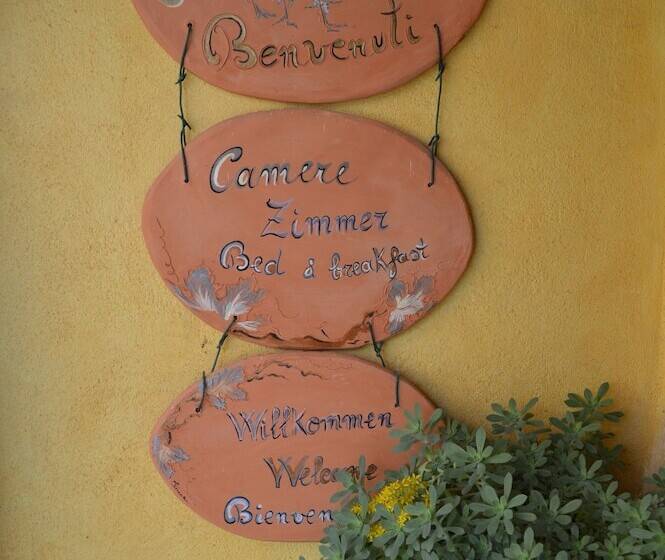 Benvenuti
Camere
Zimmer
Bed & breakfast
Willkommen
Welcome
Bienven